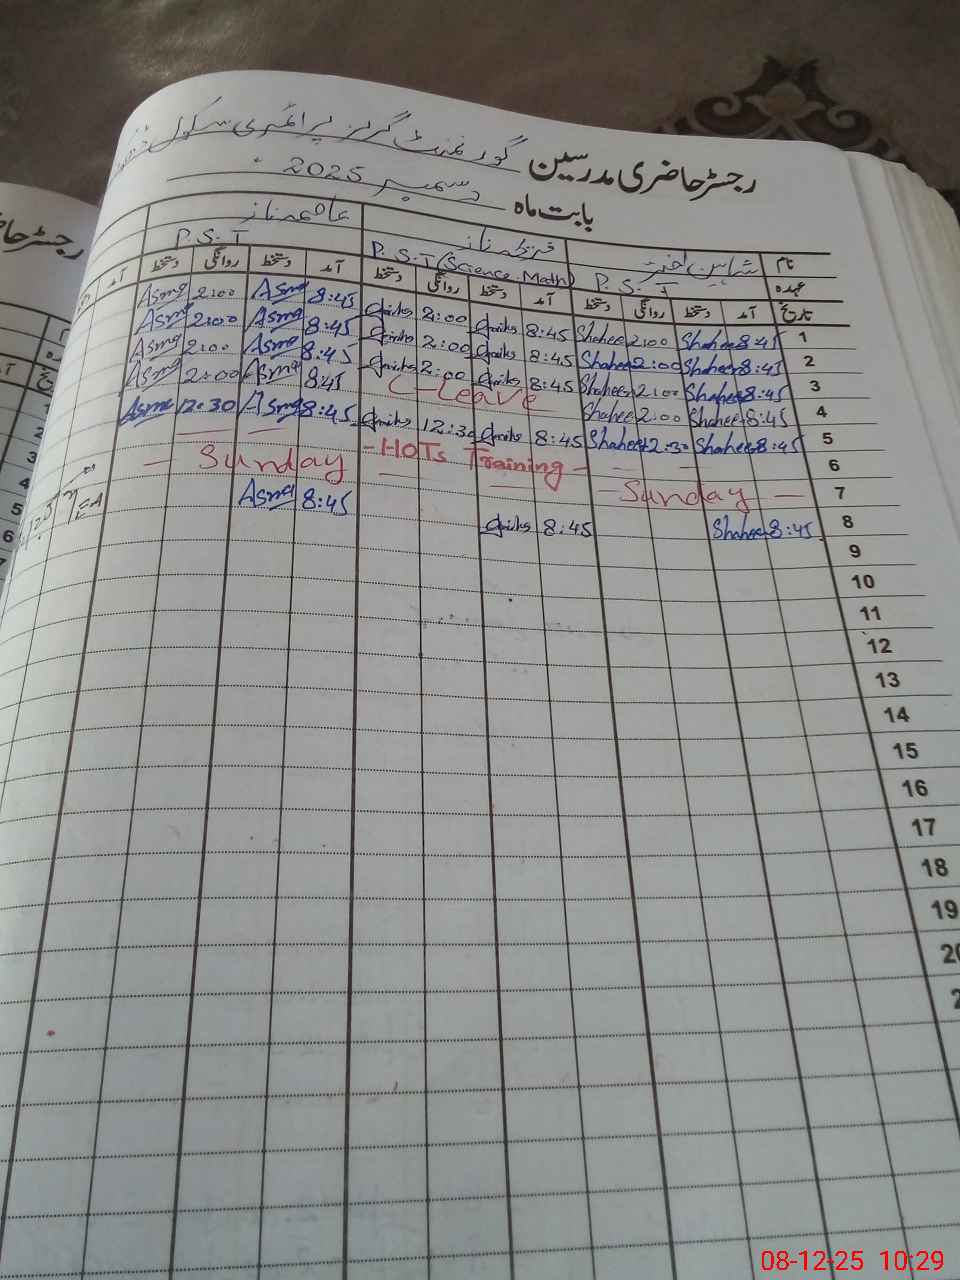 رجسٹر حاضری مدرسین گورنمنٹ گرلز پرائمری سکول
بابت ماہ دسمبر 2025
نام شاہین اختر ناز ناز
عہدہ P.S.T P.S.T (Science.Math) P.S.T
تاریخ آمد دستخط روانگی دستخط آمد دستخط روانگی دستخط آمد دستخط روانگی دستخط آمد
1 8:45 Shaheen 2:00 Shaheen 8:45 2:00 8:45 Asma 2:00 Asma
2 8:45 Shaheen 2:00 Shaheen 8:45 2:00 8:45 Asma 2:00 Asma
3 8:45 Shaheen 2:00 Shaheen 8:45 2:00 8:45 Asma 2:00 Asma
4 8:45 Shaheen 2:00 Shaheen C-Leave 8:45 Asma 2:00 Asma
5 8:45 Shaheen 12:30 Shaheen 8:45 12:30 8:45 Asma 12:30 Asma
6 - HOTs Training -
7 - Sunday - - Sunday
8 8:45 Shaheen 8:45 8:45 Asma
9
10
11
12
13
14
15
16
17
18
19
08-12-25 10:29